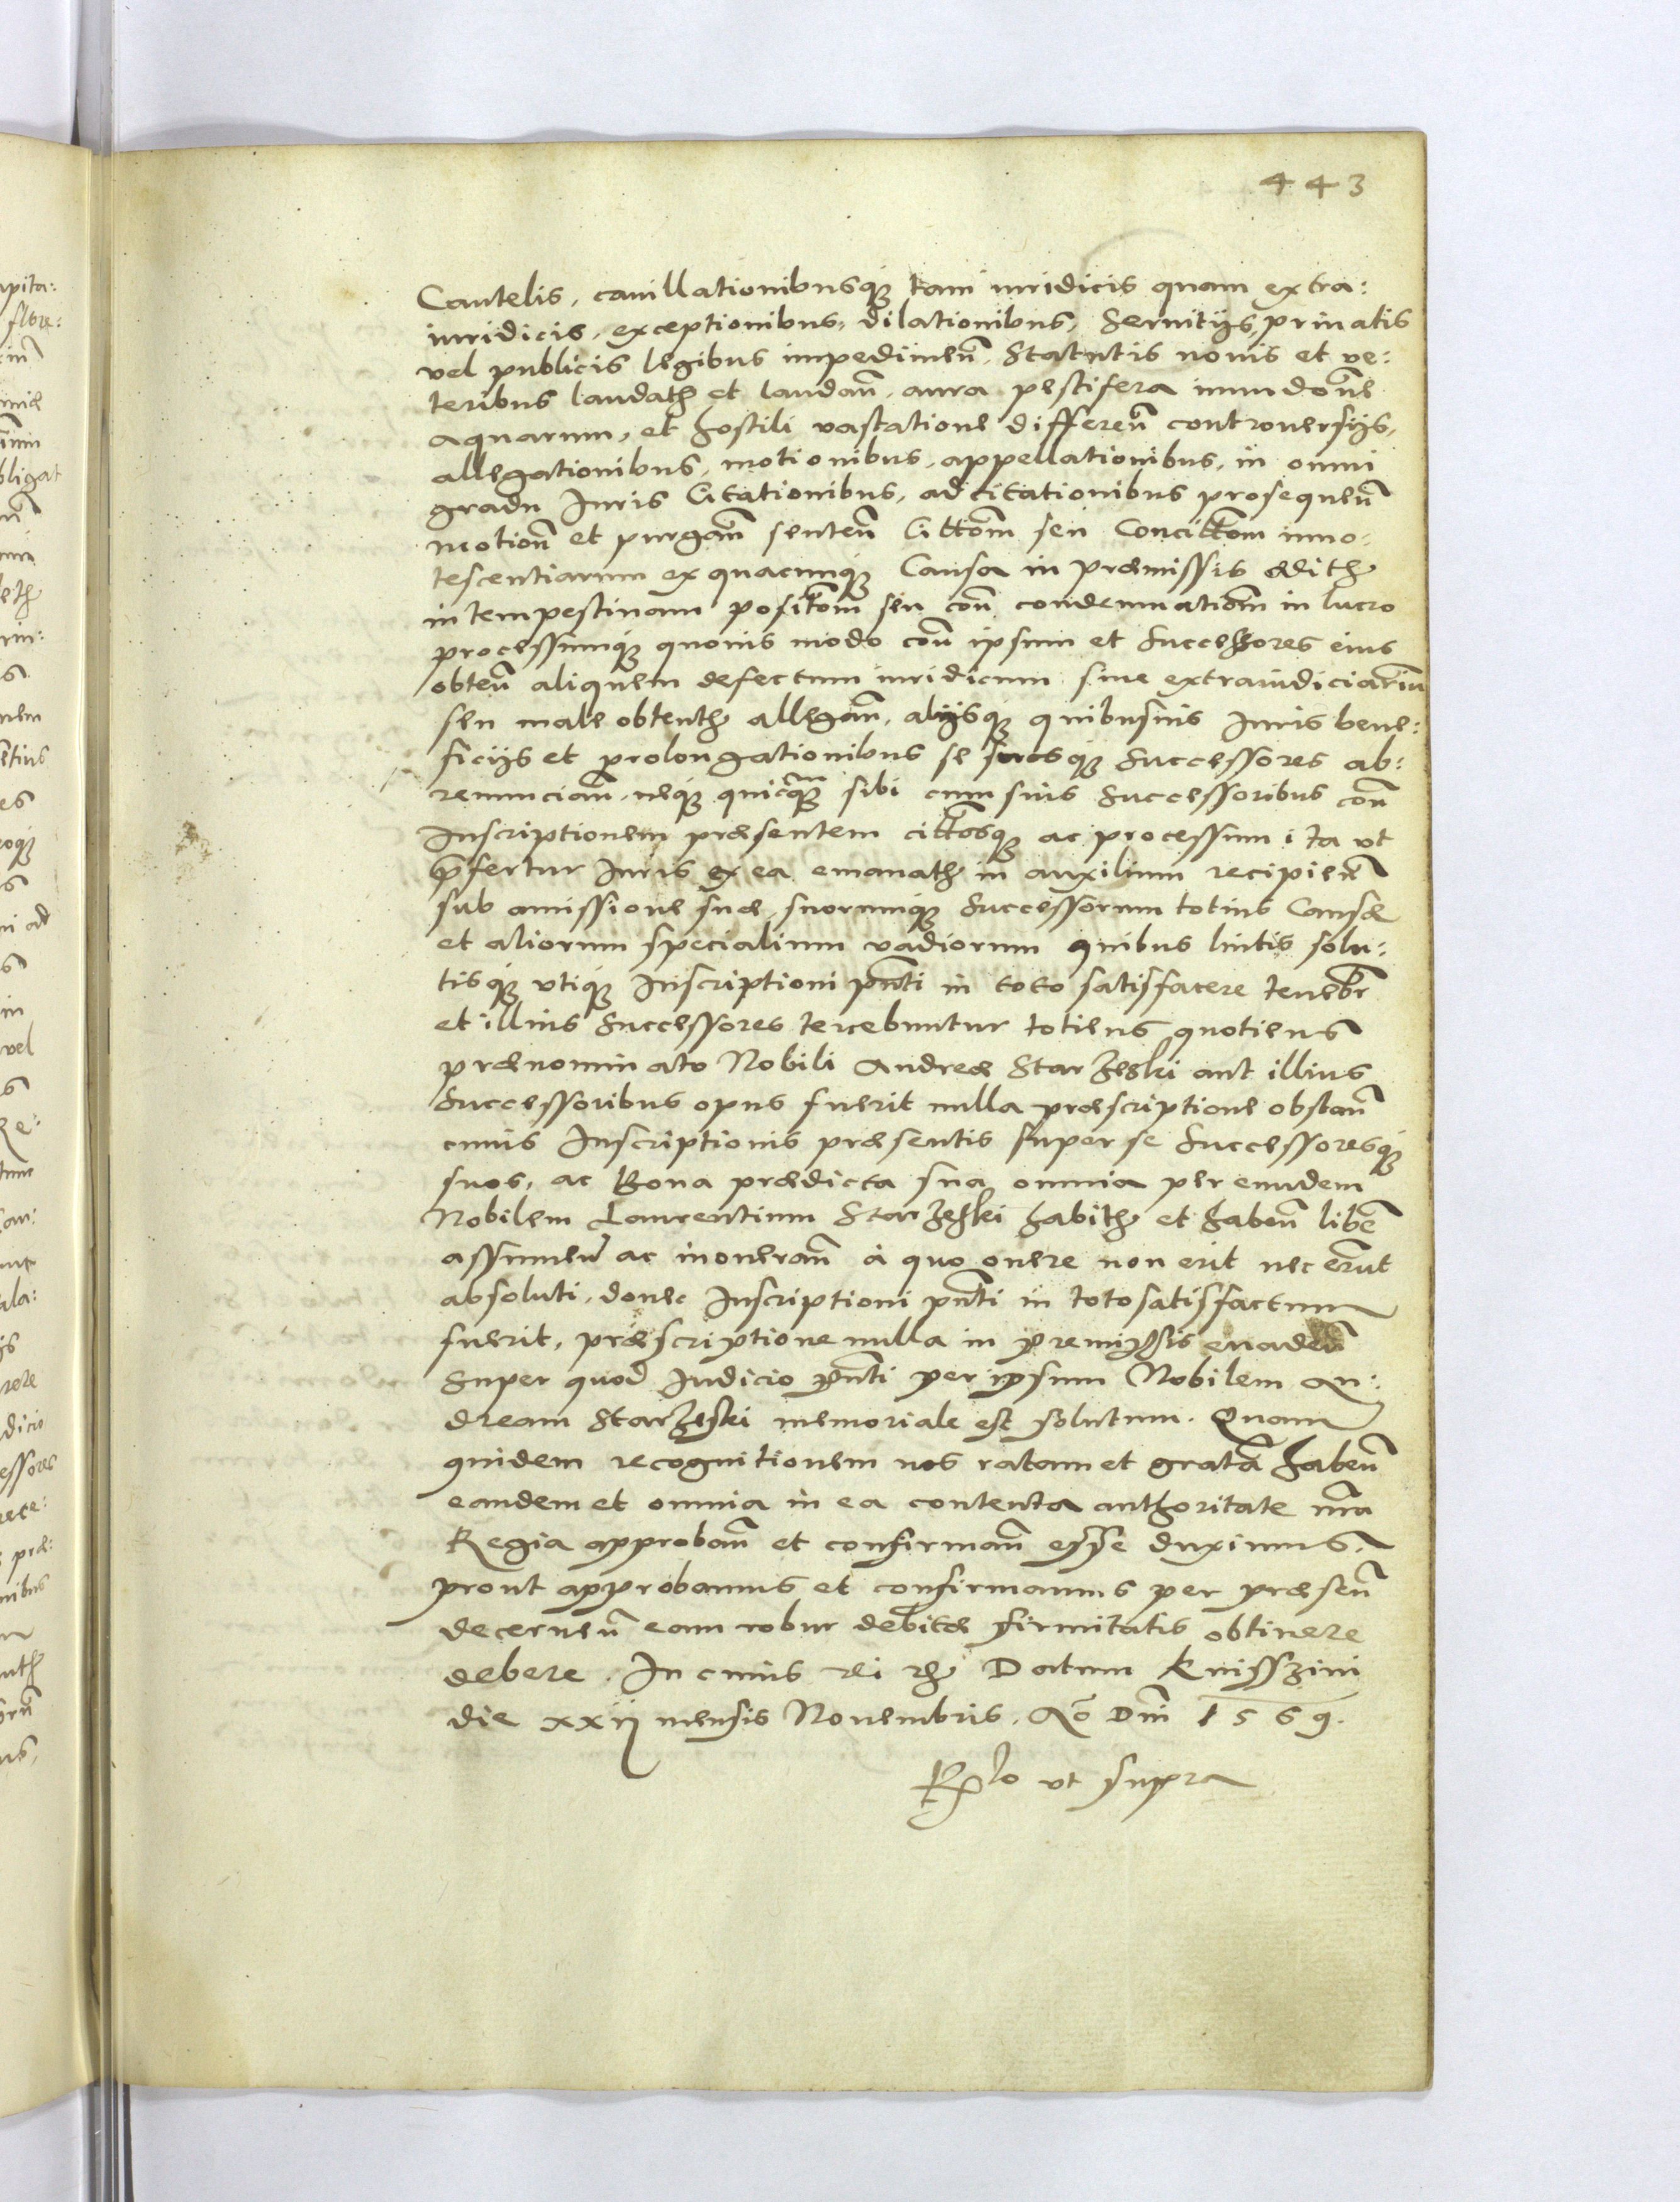 443
Cautelis, cauillationibusq̃ tam iuridicis quam extra:
iuridicis, exceptionibus, dilationibus, Seruitijs, priuatis
vel publicis legibus impedimeñ, Statutis nouis et ve:
teribus laudatħ et laudañ, aura pestifera inundoñe
aquarum, et hostili vastatione differeñ controuersijs,
allegationibus, motionibus, appellationibus, in omni
gradu Iuris Citationibus, adcitationibus prosequeñ
motioñ et purgam̃ senteñ Cittom̃ seu Concittom̃ inno:
tescentiarum ex quacunq̃ Causa in præmissis editħ
intempestiuam positom̃ seu coñ condemnatiom̃ in lucro
processumq̃ quouis modo coñ ipsum et Successores eius
obteñ aliquem defectum iuridicum siue extraiudiciariũ
seu male obtentħ allegañ, alijsq̃ quibusuis Iuris bene:
ficijs et prolongationibus se suosq̃ Successores ab:
renuncians, neq̃ quicq̃m sibi cum suis Successoribus coñ
Inscriptionem præsentem cittosq̃ ac processum ita vt
p̃fertur Iuris ex ea emanatħ in auxilium recipieñ
sub amissione suæ, suorumq̃ Successorum totius Causæ
et aliorum specialium vadiorum quibus luitis solu:
tisq̃ vtiq̃ Inscriptioni pñti in toto satisfacere tenebr̃
et illius Successores tenebuntur totiens quotiens
prænominato Nobili Andreæ Starzeski aut illius
Successoribus opus fuerit nulla præscriptione obstañ
onus Inscriptionis præsentis super se Successoresq̃
suos, ac Bona prædicta sua omnia per eundem
Nobilem Laurentium Starzeski habitħ et habeñ libẽ
assumeñ ac inonerañ à quo onere non erit nec erũt
absoluti, donec Inscriptioni pñti in toto satisfactum
fuerit, præscriptione nulla in premissis euadeñ
Super quod Iudicio pñti per ipsum Nobilem An:
dream Starzeski memoriale est solutum. Quam
quidem recognitionem nos ratam et gratã habeñ
eandem et omnia in ea contenta authoritate nr̃a
Regia approbañ et confirmañ esse duximus,
prout approbamus et confirmamus per præseñ
decerneñ eam robur debitæ firmitatis obtinere
debere. In cuius rei rħ Datum Knisszini
die xxij mensis Nouembris. Aõ Dñi 1569.
Rħlo vt supra